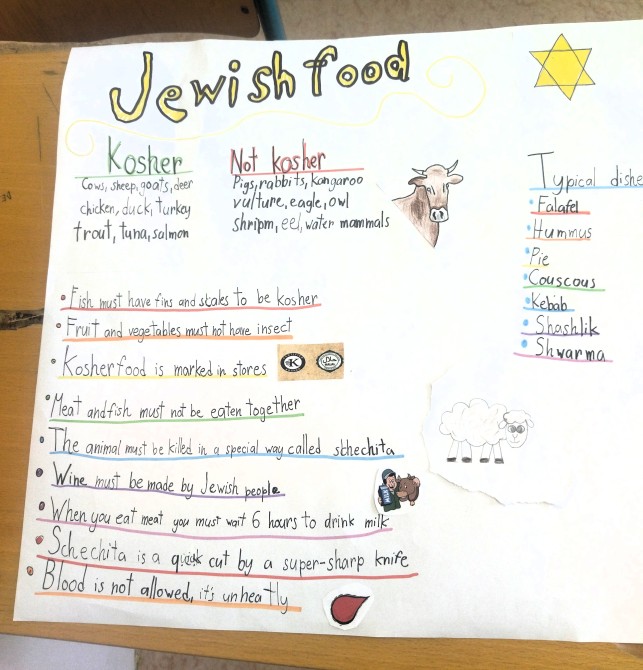 Jewish food
Kosher
Cows, sheep, goats, deer
chicken, duck, turkey
trout, tuna, salmon
Not kosher
Pigs, rabbits, kangaroo
vulture, eagle, owl
shripm, eel, water mammals
Typical dishe
Falafel
Hummus
Pie
Couscous
Kebab
Shashlik
Shwarma
Fish must have fins and skales to be kosher
Fruit and vegetables must not have insect
Kosher food is marked in stores
K
Meat and fish must not be eaten together
The animal must be killed in a special way called schechita
Wine must be made by Jewish people
When you eat meat you must wait 6 hours to drink milk
Schechita is a quick cut by a super-sharp knife
Blood is not allowed, it's unheatly